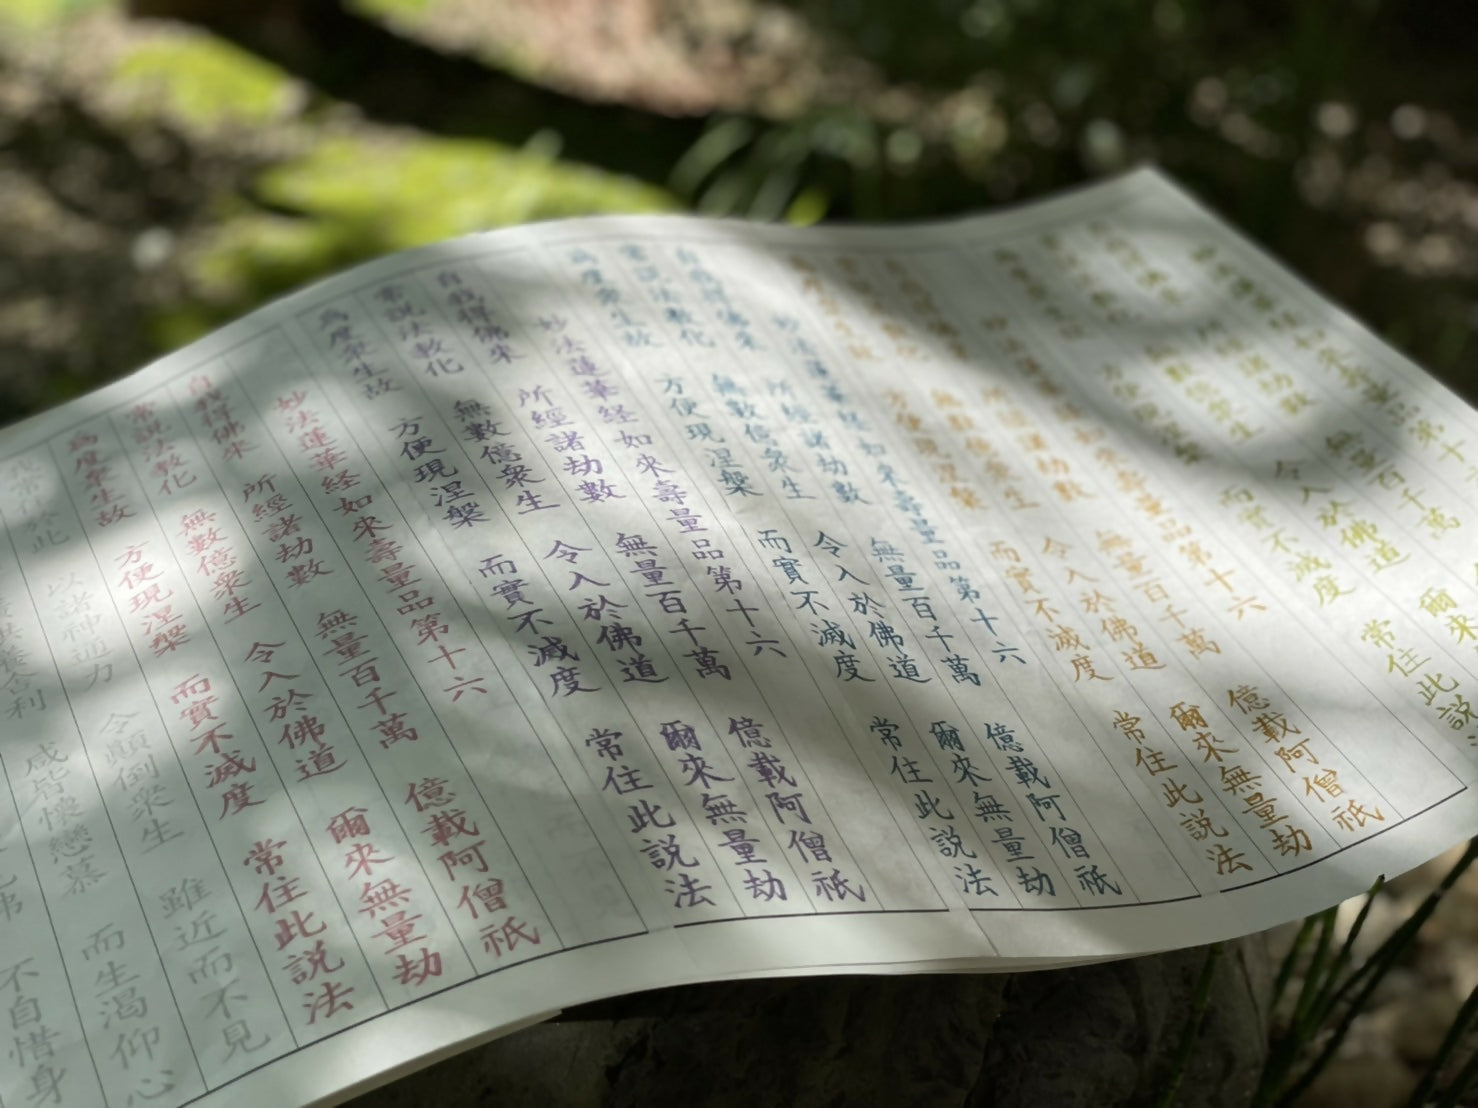 妙法蓮華経如來壽量品第十
無量百千萬
令入於佛道 爾來
而實不滅度 常住此説
妙法蓮華経如來壽量品第十六
所經諸劫數 無量百千萬 億載阿僧祇
無數億衆生 令入於佛道 爾來無量劫
方便現涅槃 而實不滅度 常住此説法
妙法蓮華経如來壽量品第十六
自我得佛來 所經諸劫數 無量百千萬 億載阿僧祇
常説法教化 無數億衆生 令入於佛道 爾來無量劫
為度衆生故 方便現涅槃 而實不滅度 常住此説法
妙法蓮華経如來壽量品第十六
自我得佛來 所經諸劫數 無量百千萬 億載阿僧祇
常説法教化 無數億衆生 令入於佛道 爾來無量劫
為度衆生故 方便現涅槃 而實不滅度 常住此説法
妙法蓮華経如來壽量品第十六
自我得佛來 所經諸劫數 無量百千萬 億載阿僧祇
常説法教化 無數億衆生 令入於佛道 爾來無量劫
為度衆生故 方便現涅槃 而實不滅度 常住此説法
我常住於此 以諸神通力 令顛倒衆生 雖近而不見
供養舍利 咸皆懷戀慕 而生渇仰心
見佛 不自惜身